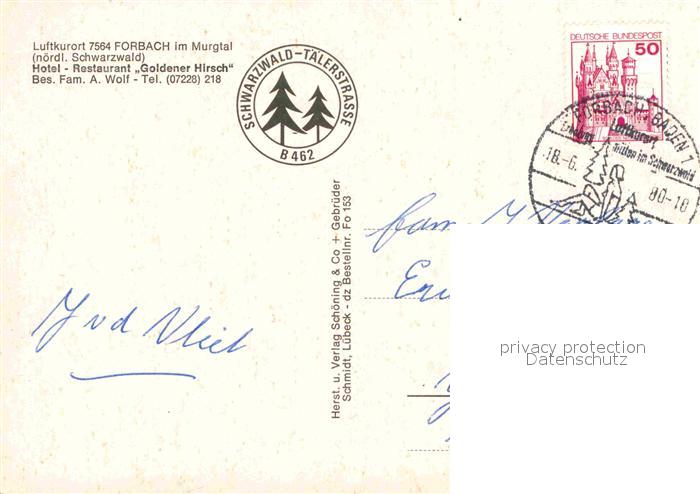 Luftkurort 7564 FORBACH im Murgtal
(nördl. Schwarzwald)
Hotel - Restaurant „Goldener Hirsch"
Bes. Fam. A. Wolf - Tel. (07228) 218
SCHWARZWALD-TÄLERSTRASSE
B 462
DEUTSCHE BUNDESPOST
50
FORBACH, BADEN 1
Luftkurort
mitten im Schwarzwald
18.-6.
80-18
Fam.
J v d Vliet
Herst. u. Verlag Schöning & Co + Gebrüder
Schmidt, Lübeck - dz Bestellnr. Fo 153
privacy protection
Datenschutz